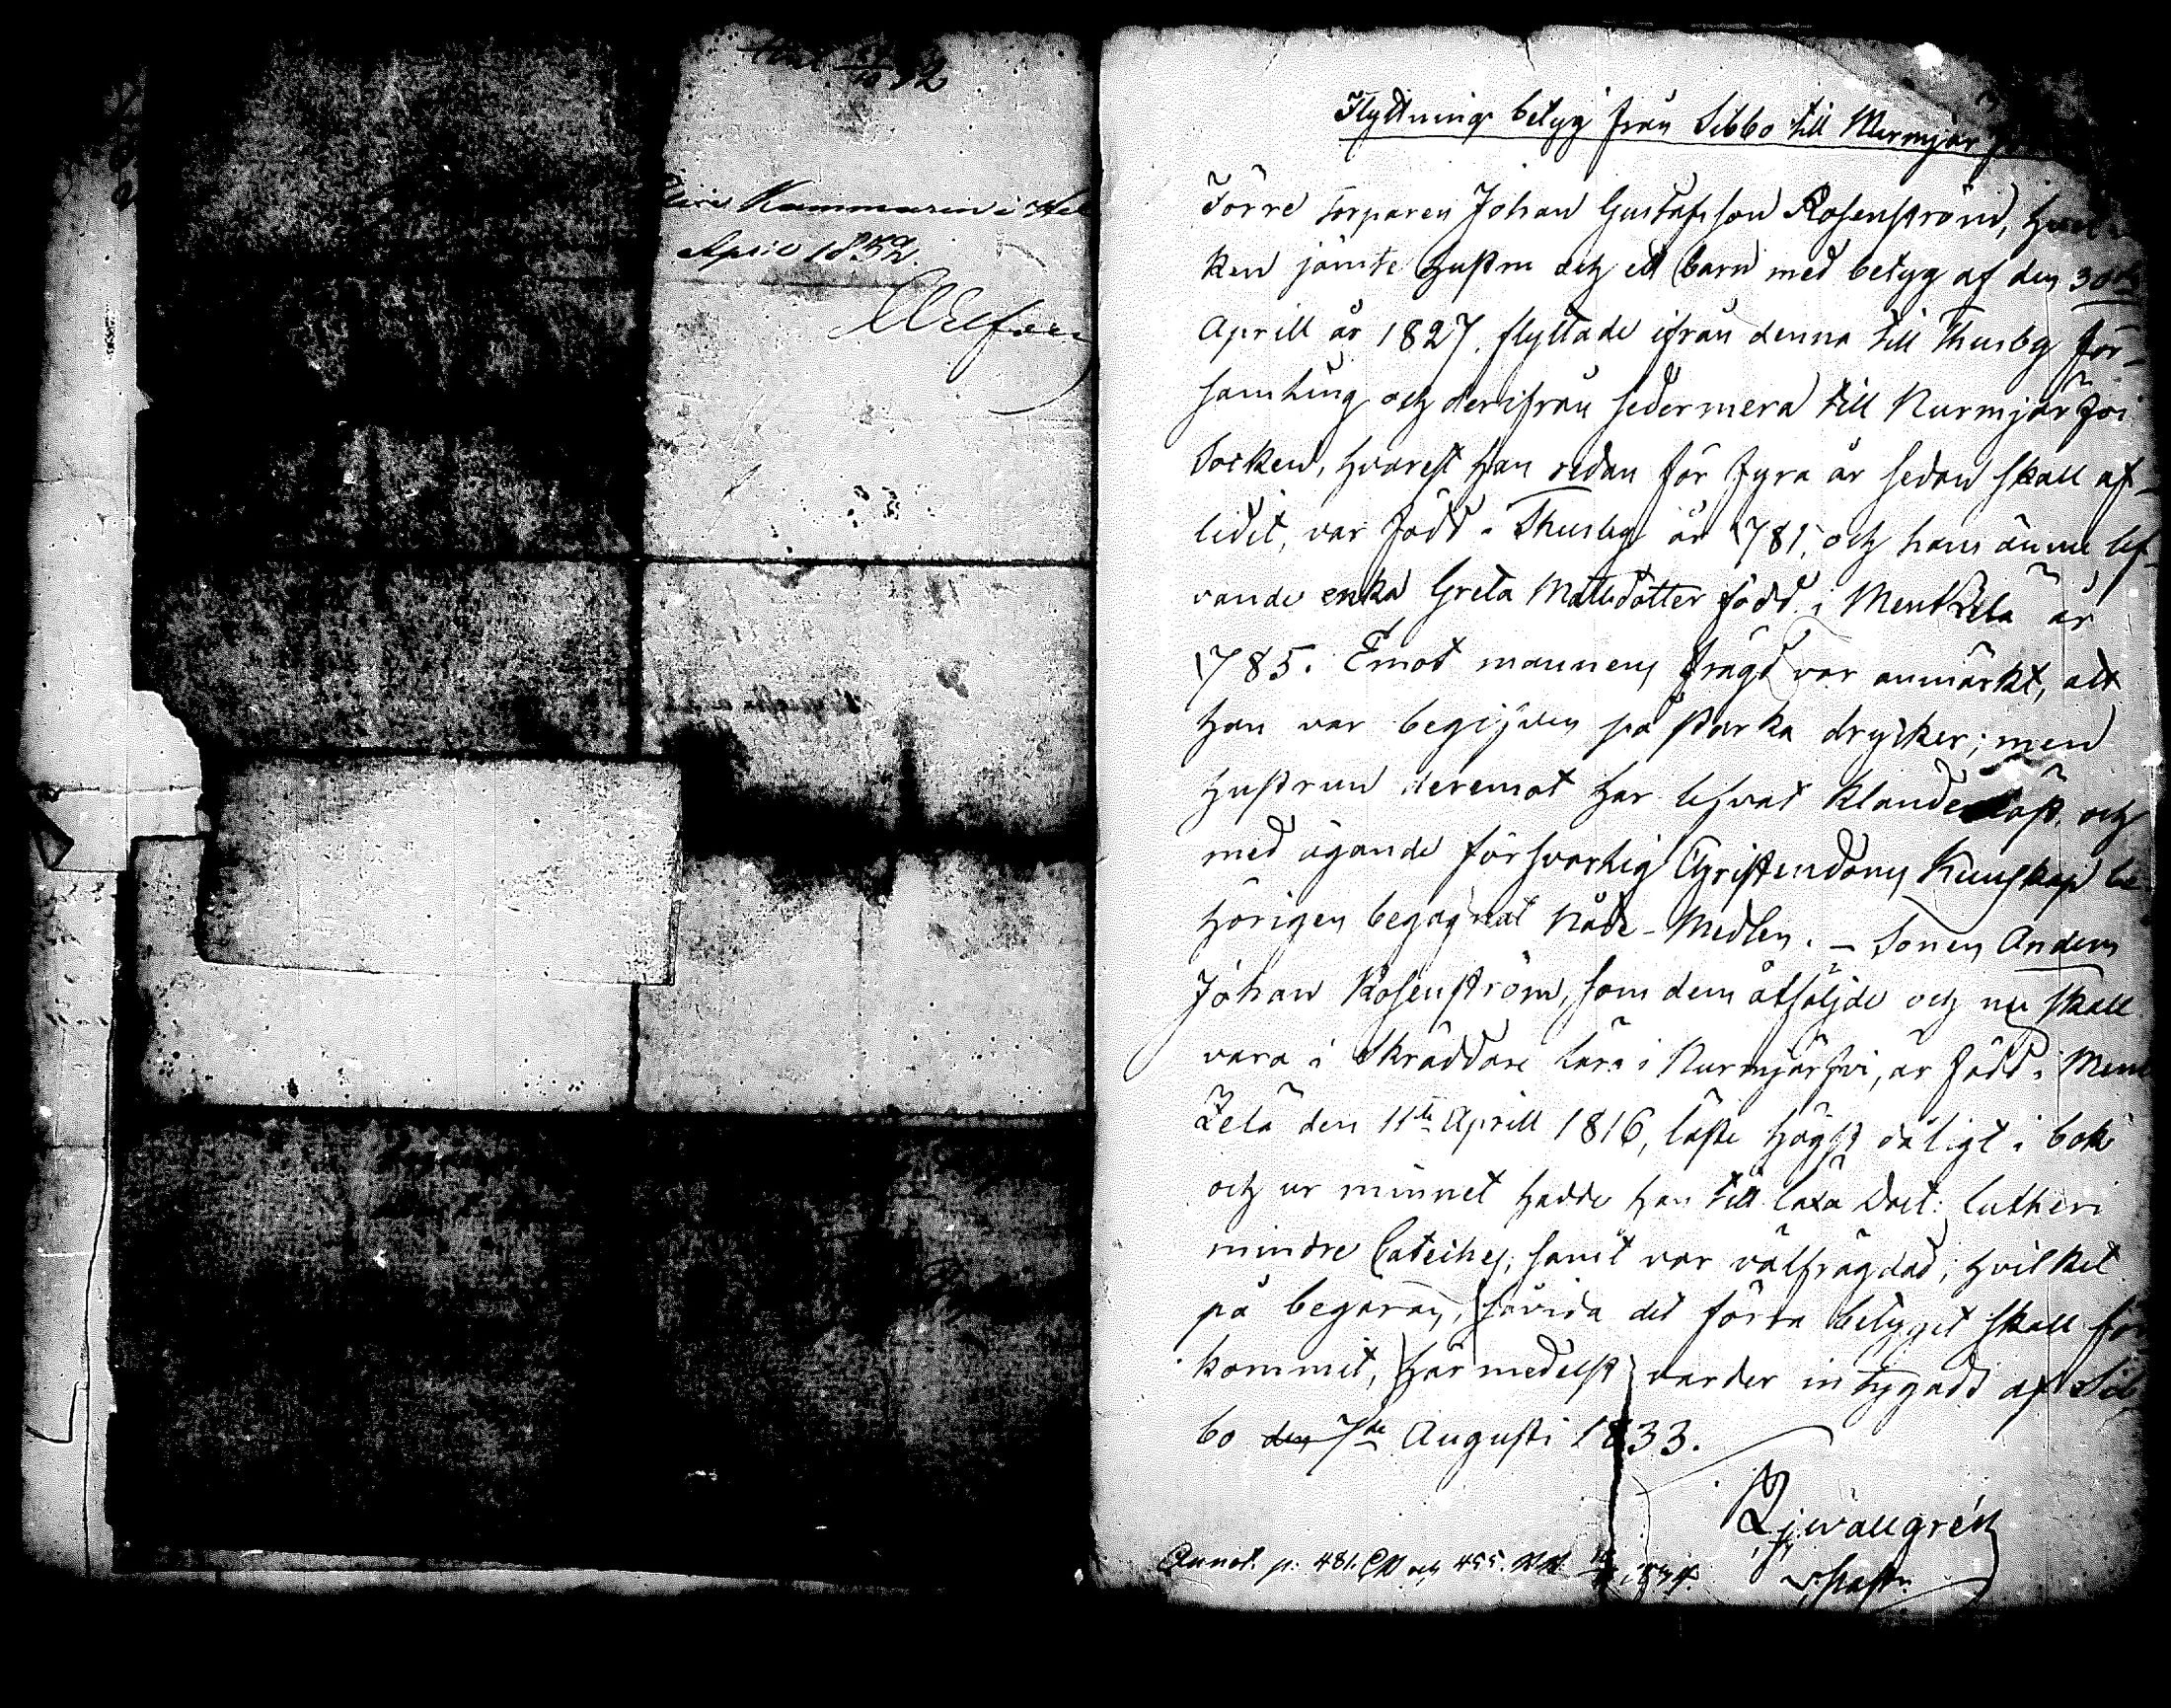 Kammaren i
April 1832.
Flyttnings betyg från Sibbo till Nurmjär
Förre Torparen Johan Gustafsson Rosenström, hvil
ken jämte hustru och ett barn med betyg af den 30de
Aprill år 1827. flyttade ifrån denna till Thusby för-
samling och derifrån sedermera till Nurmjärfvi
Socken, hvarest han redan för fyra år sedan skall af-
lidit, var född i Thusby år 1781, och hans ännu lef-
vande enka Greta Mattsdotter född i Mentzelä år
1785. Emot mannens frägd var anmärkt, att
han var begifven på starka drycker; men
hustrun deremot har lefvat klanderlöst, och
med ägande försvarlig Christendoms Kunskap be
hörigen begagnat Nåde-Medlen. – Sonen Anders
Johan Rosenström, som dem åtföljde och nu skall
vara i Skräddare lära i Nurmjärfvi, är född i Ment
zelä den 11te Aprill 1816, läste högst dåligt i bok
och ur minnet hade han till läxa Doct: Lutheri
mindre Cateches, samt var välfrägdad; hvilket
på begäran, såvida det förra betyget skall för
kommit, härmedelst varder intygadt af Sib
bo den 7de Augusti 1833.
Zj Wallgrén
v. Past.
Annot. p. 481. och 455.